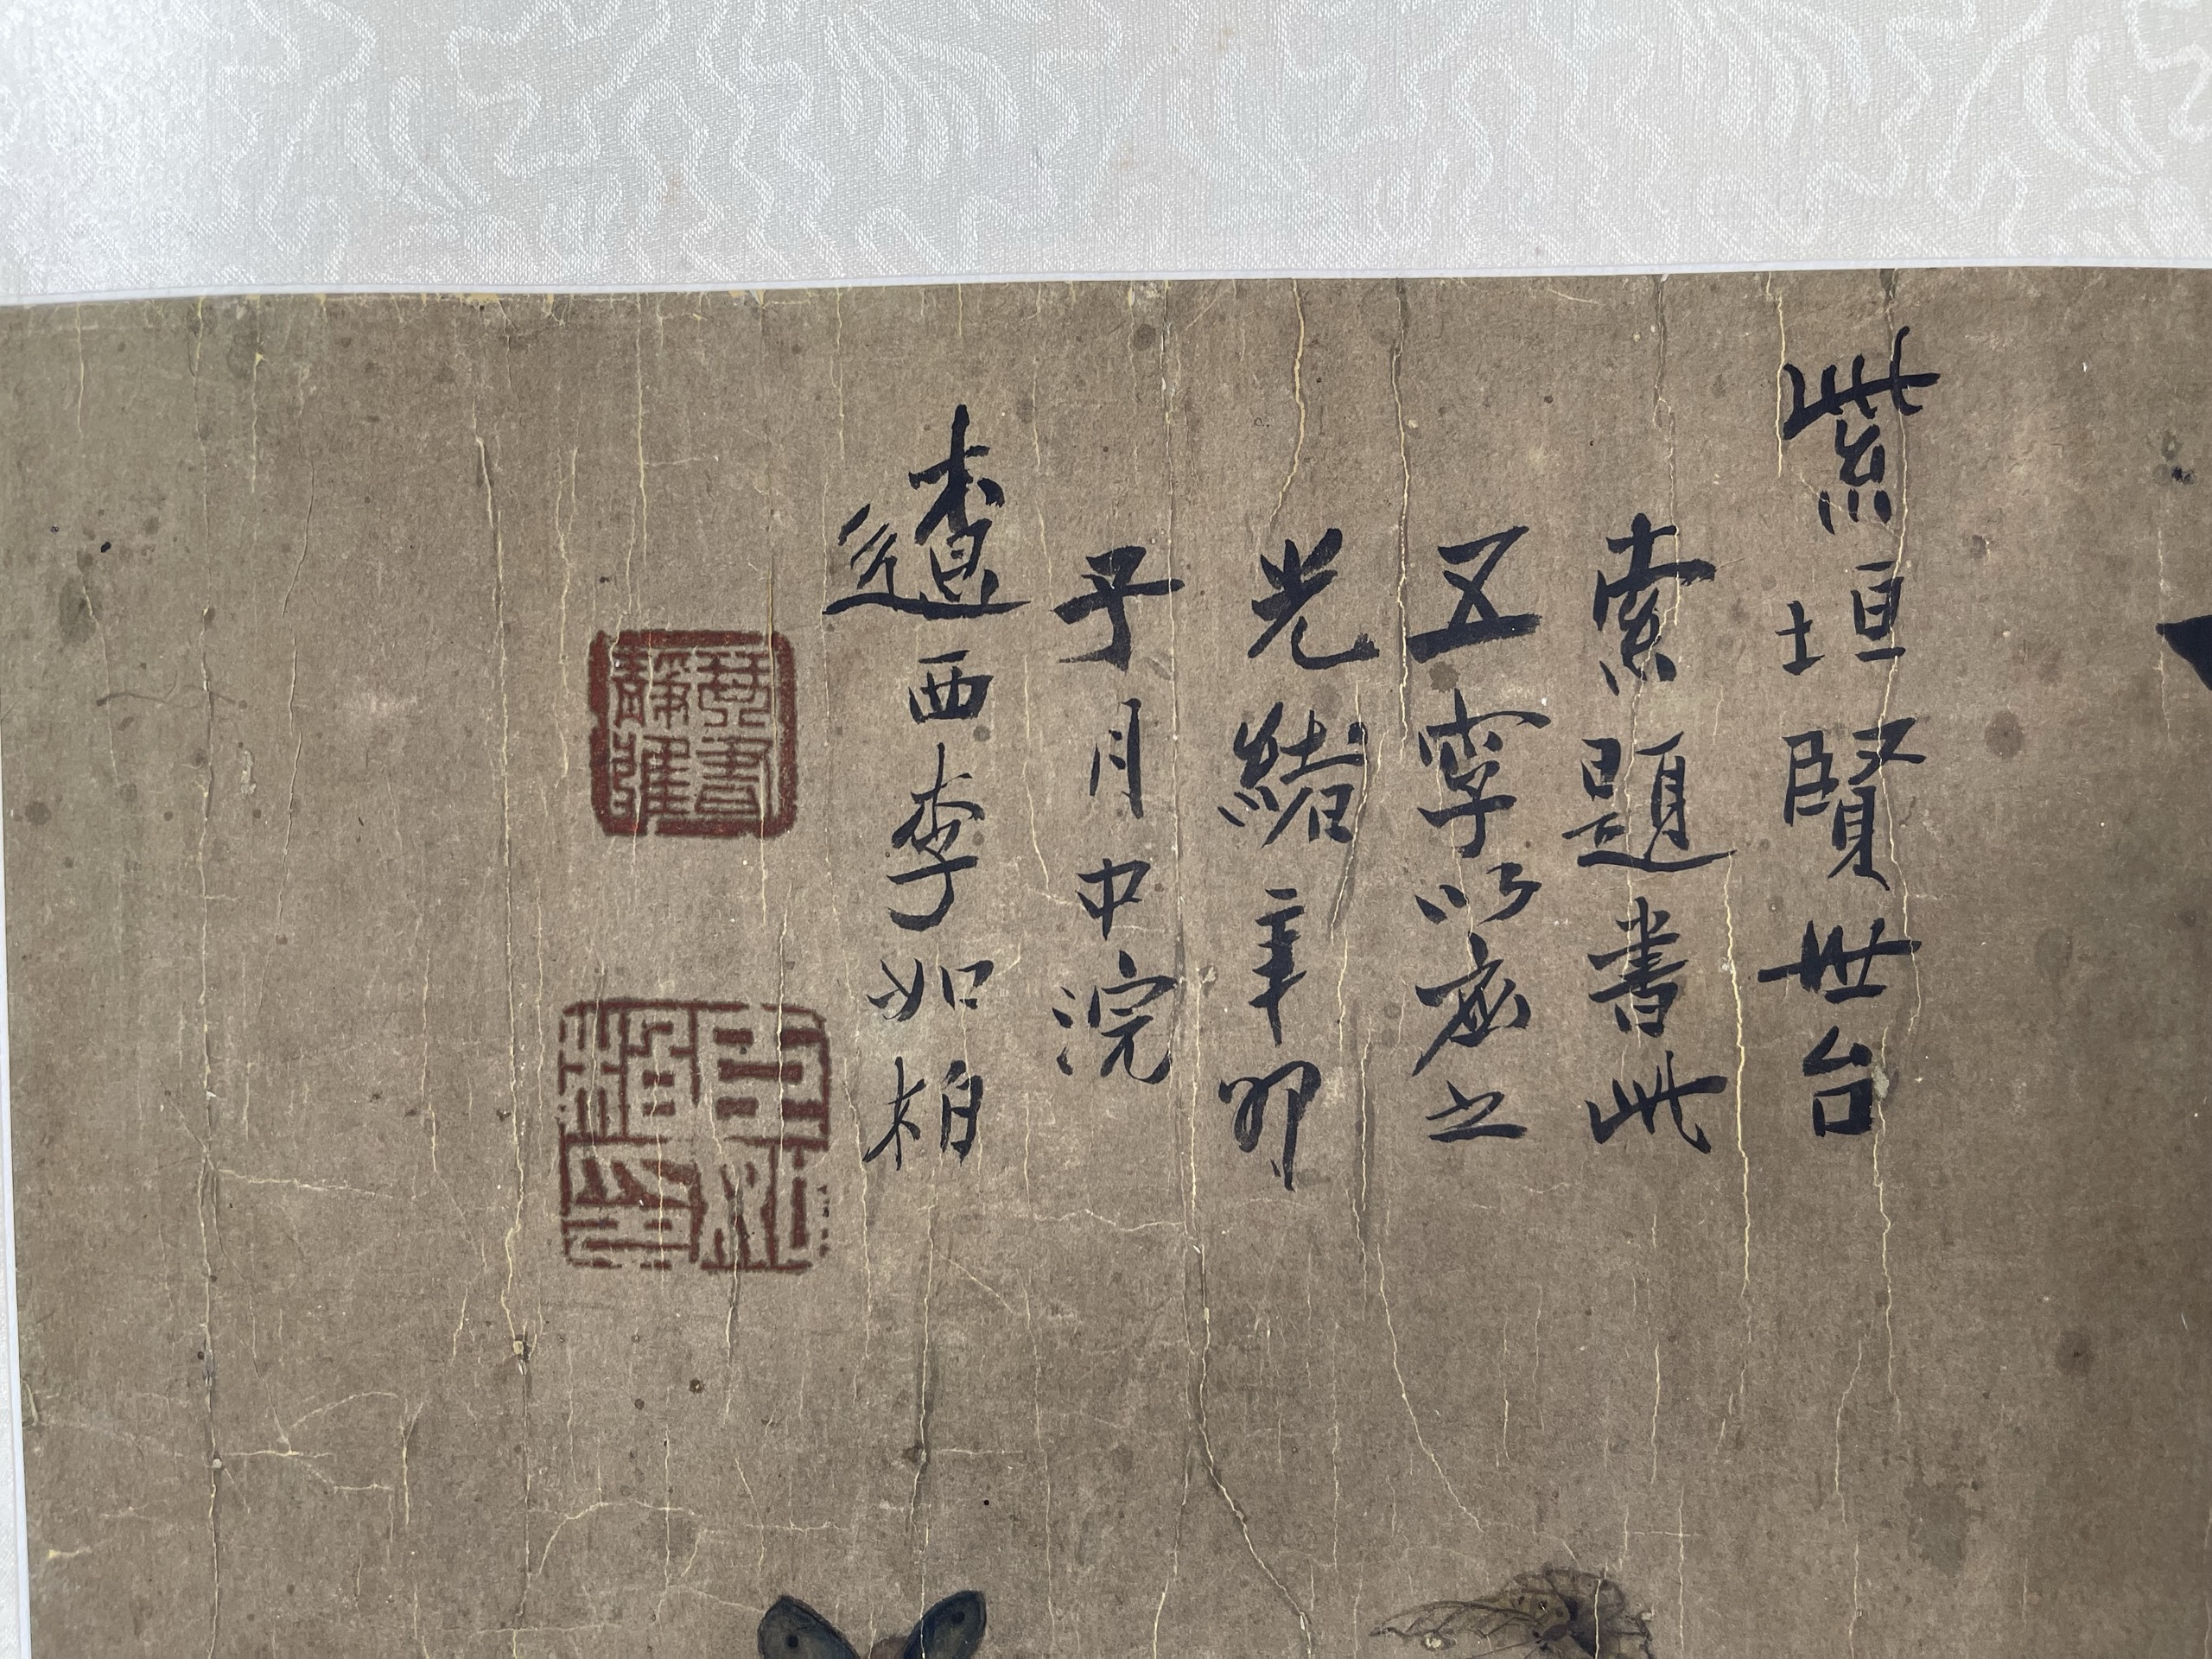 紫垣賢世台
索題書此
五字以應之
光緒辛卯
子月中浣
遼西李如柏